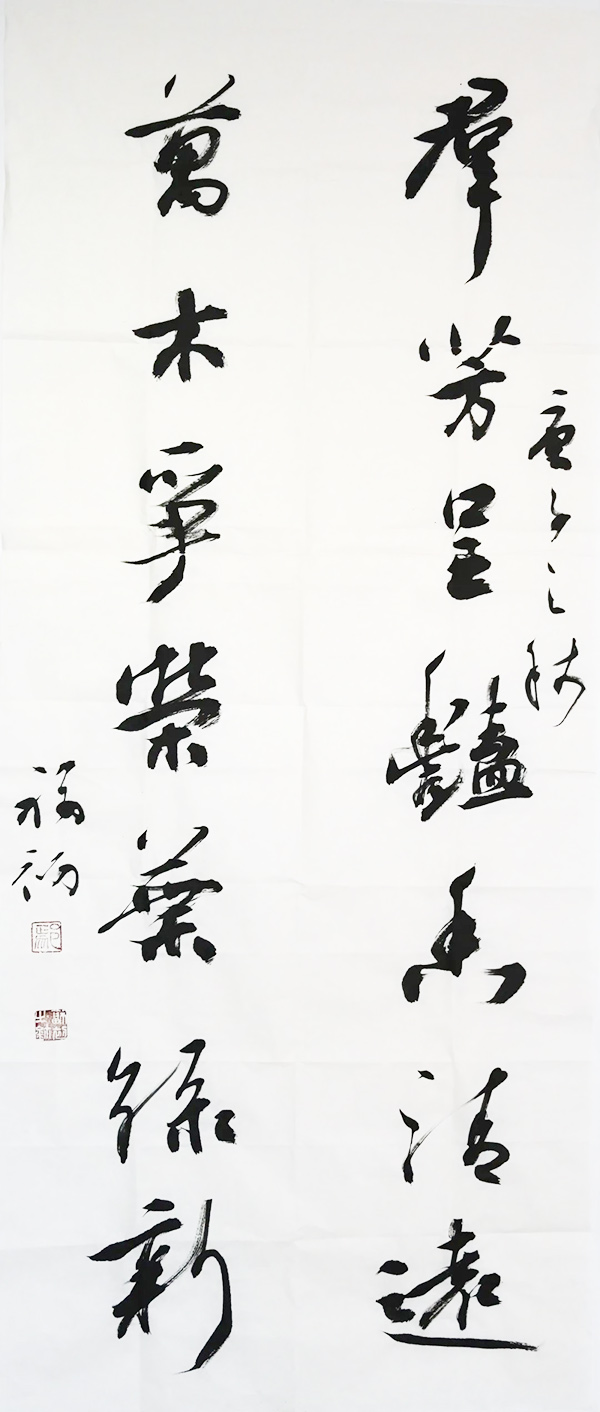 庚子之秋
羣芳呈豔香清遠
萬木爭榮葉綠新
福